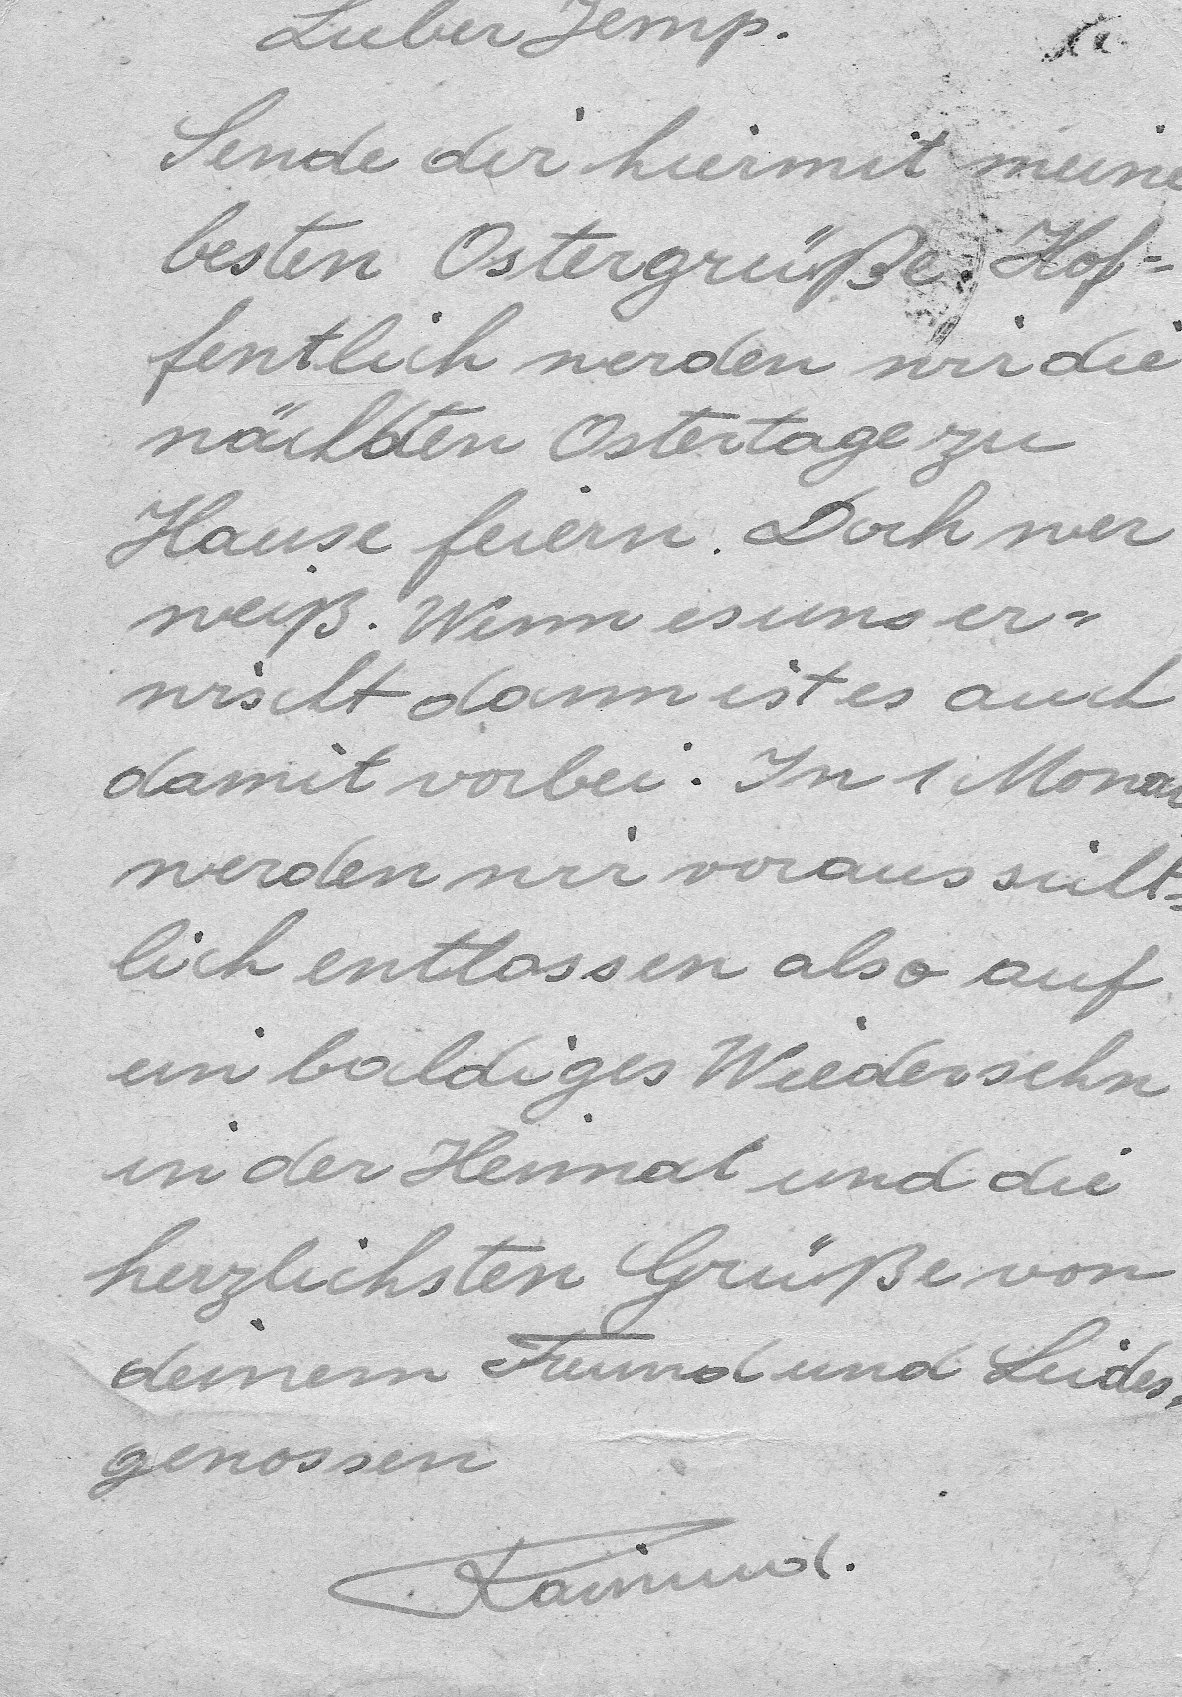 Lieber Jemp.
Sende dir hiermit meine
besten Ostergrüße. Hof-
fentlich werden wir die
nächsten Ostertage zu
Hause feiern. Doch wer
weiß. Wenn es uns er-
wischt dann ist es auch
damit vorbei. In 1 Monat
werden wir voraussicht-
lich entlassen also auf
ein baldiges Wiedersehn
in der Heimat und die
herzlichsten Grüße von
deinem Freund und Leides-
genossen
Raimund.